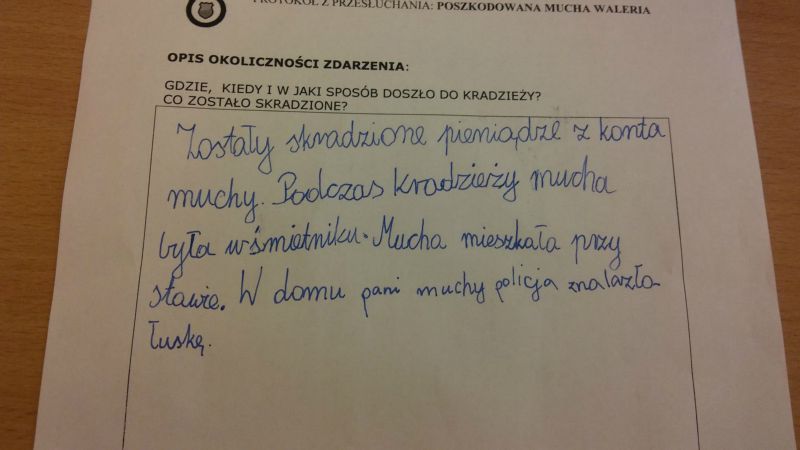 PROTOKÓŁ Z PRZESŁUCHANIA: POSZKODOWANA MUCHA WALERIA
OPIS OKOLICZNOŚCI ZDARZENIA:
GDZIE, KIEDY I W JAKI SPOSÓB DOSZŁO DO KRADZIEŻY?
CO ZOSTAŁO SKRADZIONE?
Zostały skradzione pieniądze z konta
muchy. Podczas kradzieży mucha
była wśmietniku. Mucha mieszkała przy
stawie. W domu pani muchy policja znalazła
łuskę.